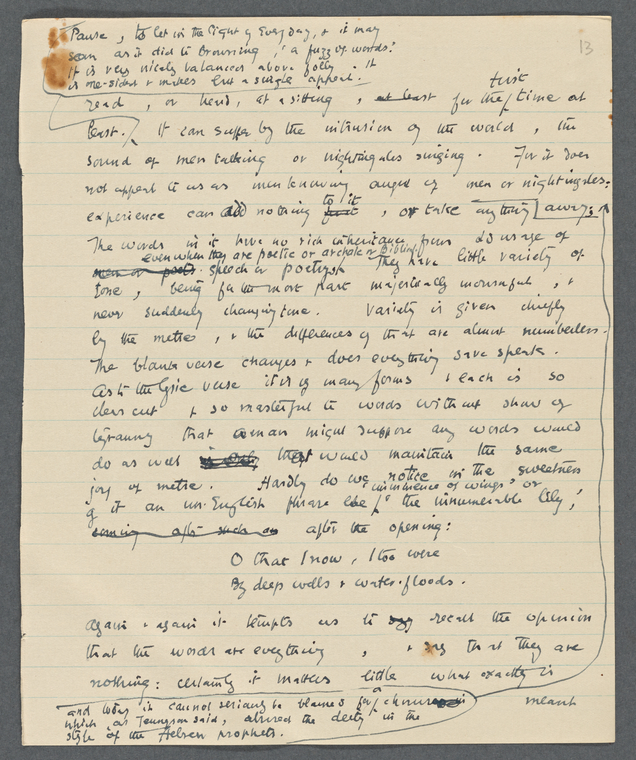 13
Pause, to let in the light of Everyday, & it may
seem as it did to Browning, 'a fuzz of words.'
It is very nicely balanced above folly: it
is one-sided & makes but a single appeal.
read, or heard, at a sitting, at least for the first time at
least. It can suffer by the intrusion of the world, the
sound of men talking or nightingales singing. For it does
not appeal to us as men knowing aught of men or nightingales:
experience can add nothing to it, or take anything away;
The words in it have no rich inheritance from usage of
even when they are poetic or archaic or Biblical
men or poets. speech or poetry. They have little variety of
tone, being for the most part majestically mournful, &
never suddenly changing tone. Variety is given chiefly
by the metre, & the differences of that are almost numberless.
The blank verse changes & does everything save speak.
As to the lyric verse it is of many forms & each is so
clear cut & so masterful to words without show of
tyranny that a man might suppose any words would
do as well that would maintain the same
joy of metre. Hardly do we notice in the sweetness
of it an un-English phrase like 'imminence of wings' or 'the innumerable lily,'
coming after such an after the opening:
O that I now, I too were
By deep wells & water-floods.
Again & again it tempts us to say recall the opinion
that the words are everything, & say that they are
nothing: certainly it matters little what exactly is
meant
and today it cannot seriously be blamed for a chorus
which, as Tennyson said, abused the deity in the
style of the Hebrew prophets.